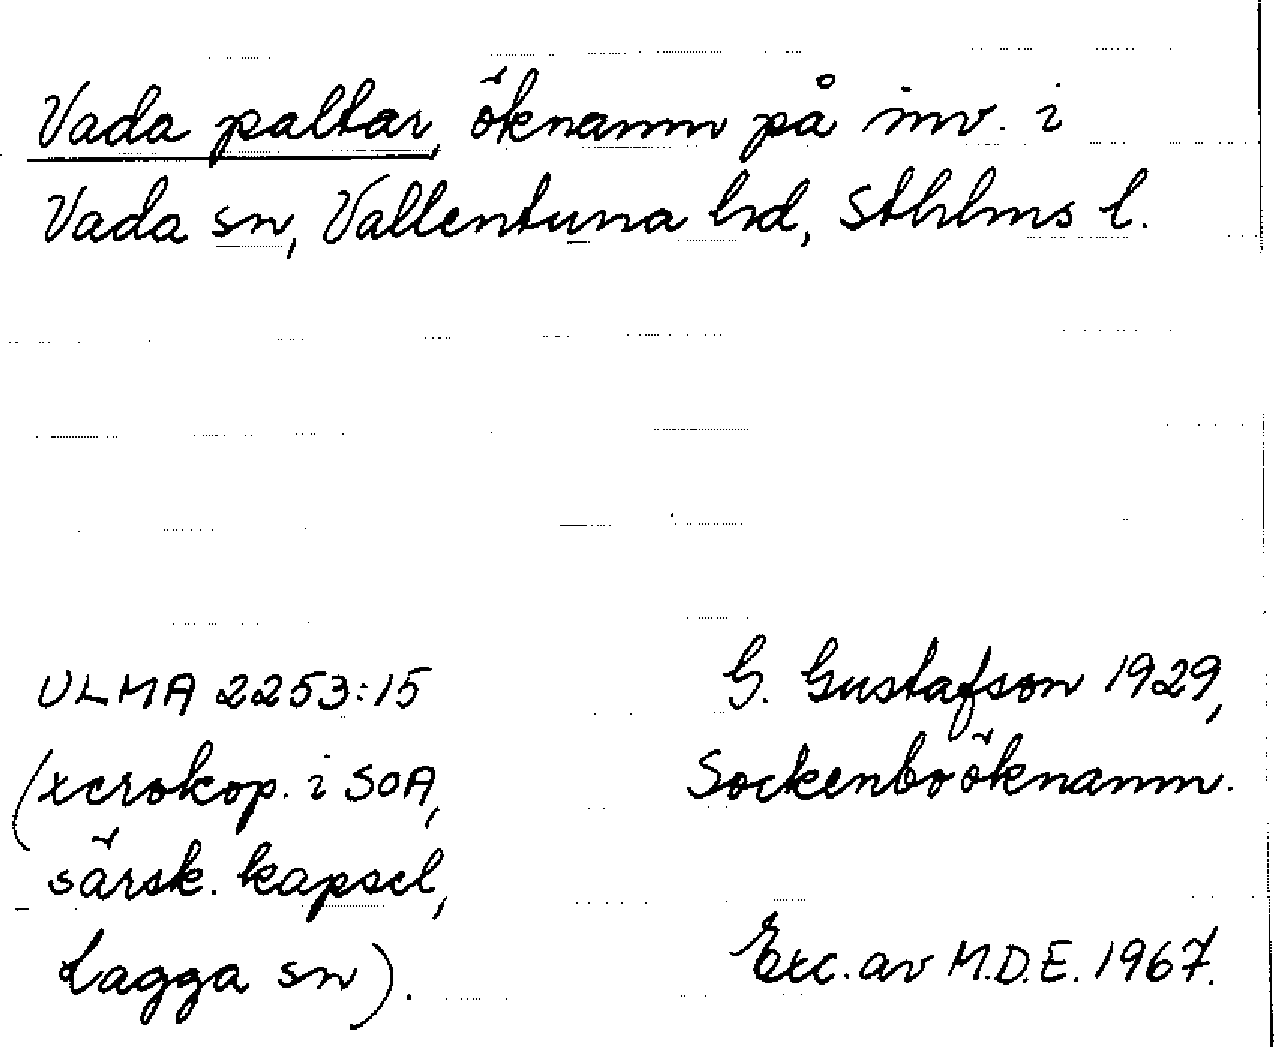 Vada paltar, öknamn på inv. i
Vada sn, Vallentuna hd, Sthlms l.
ULMA 2253:15
(xerokop. i SOA,
särsk. kapsel,
Lagga sn).
G. Gustafson 1929,
Sockenboöknamn.
Exc. av M.D.E. 1967.